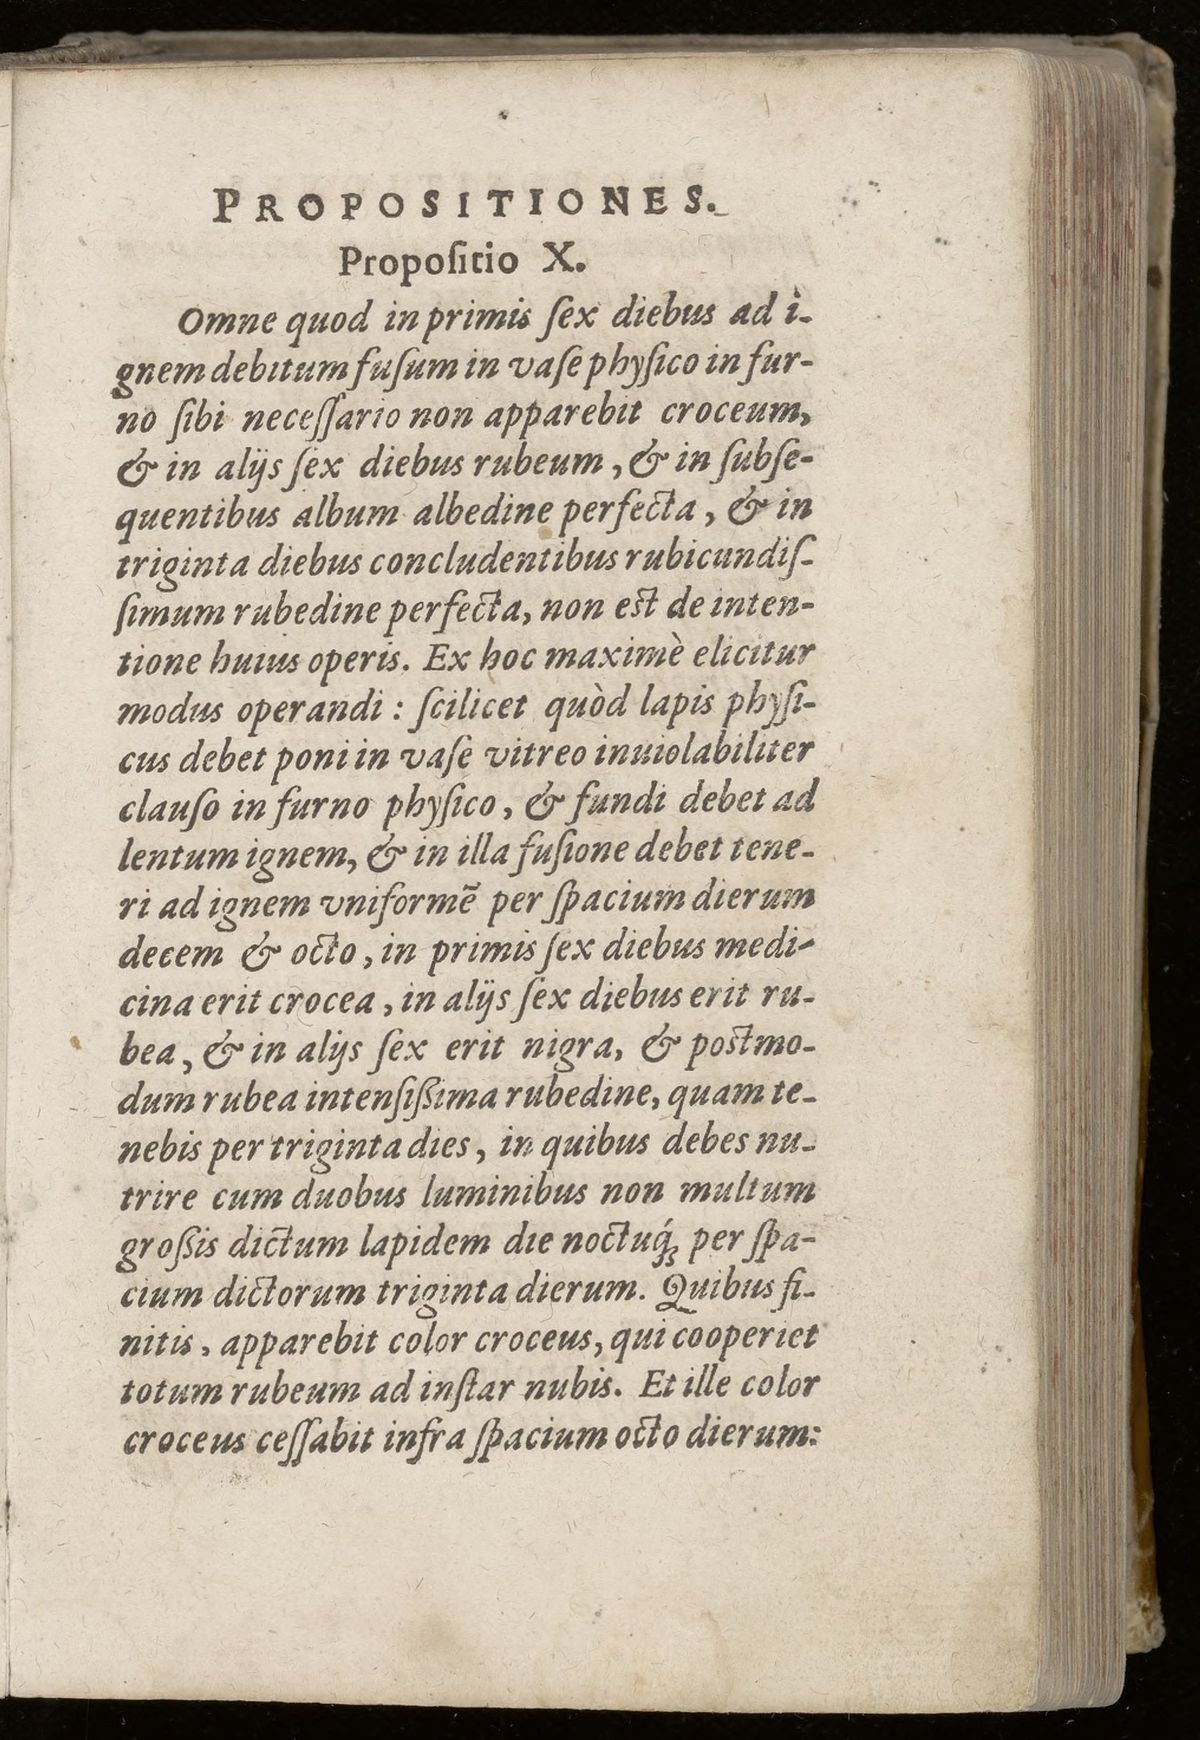 PROPOSITIONES.
Propoſitio X.
Omne quod in primis ſex diebus ad i-
gnem debitum fuſum in vaſe phyſico in fur-
no ſibi neceſſario non apparebit croceum,
& in alijs ſex diebus rubeum, & in ſubſe-
quentibus album albedine perfecta, & in
triginta diebus concludentibus rubicundiſ-
ſimum rubedine perfecta, non est de inten-
tione huius operis. Ex hoc maximè elicitur
modus operandi: ſcilicet quòd lapis phyſi-
cus debet poni in vaſe vitreo inuiolabiliter
clauſo in furno phyſico, & fundi debet ad
lentum ignem, & in illa fuſione debet tene-
ri ad ignem vniformẽ per ſpacium dierum
decem & octo, in primis ſex diebus medi-
cina erit crocea, in alijs ſex diebus erit ru-
bea, & in alijs ſex erit nigra, & postmo-
dum rubea intenſißima rubedine, quam te-
nebis per triginta dies, in quibus debes nu-
trire cum duobus luminibus non multum
großis dictum lapidem die noctuq́ꝫ per ſpa-
cium dictorum triginta dierum. Quibus fi-
nitis, apparebit color croceus, qui cooperiet
totum rubeum ad inſtar nubis. Et ille color
croceus ceſſabit infra ſpacium octo dierum: